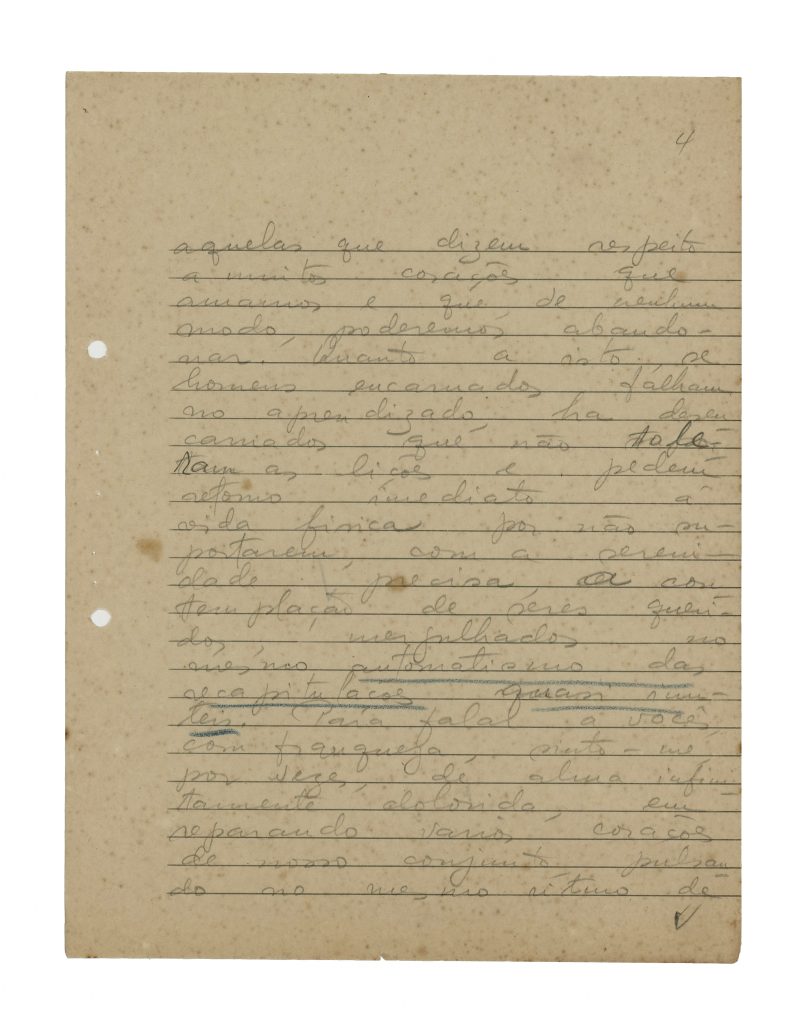 4
aquelas que dizem respeito
a muitos corações que
amamos e que de nenhum
modo, poderemos abando-
nar. Quanto a isto, se
homens encarnados falham
no aprendizado, ha desen
carnados que não
as lições e pedem
retorno imediato á
vida fisica por não su-
portarem, com a sereni-
dade precisa, a con
templação de seres queri-
dos, mergulhados no
mesmo automatismo das
recapitulações quasi inu-
teis. Para falar a você,
com franqueza, sinto-me,
por vezes, de alma infini
tamente dolorida, em
reparando varios corações
de nosso conjunto, pulsan
do no mesmo ritimo de